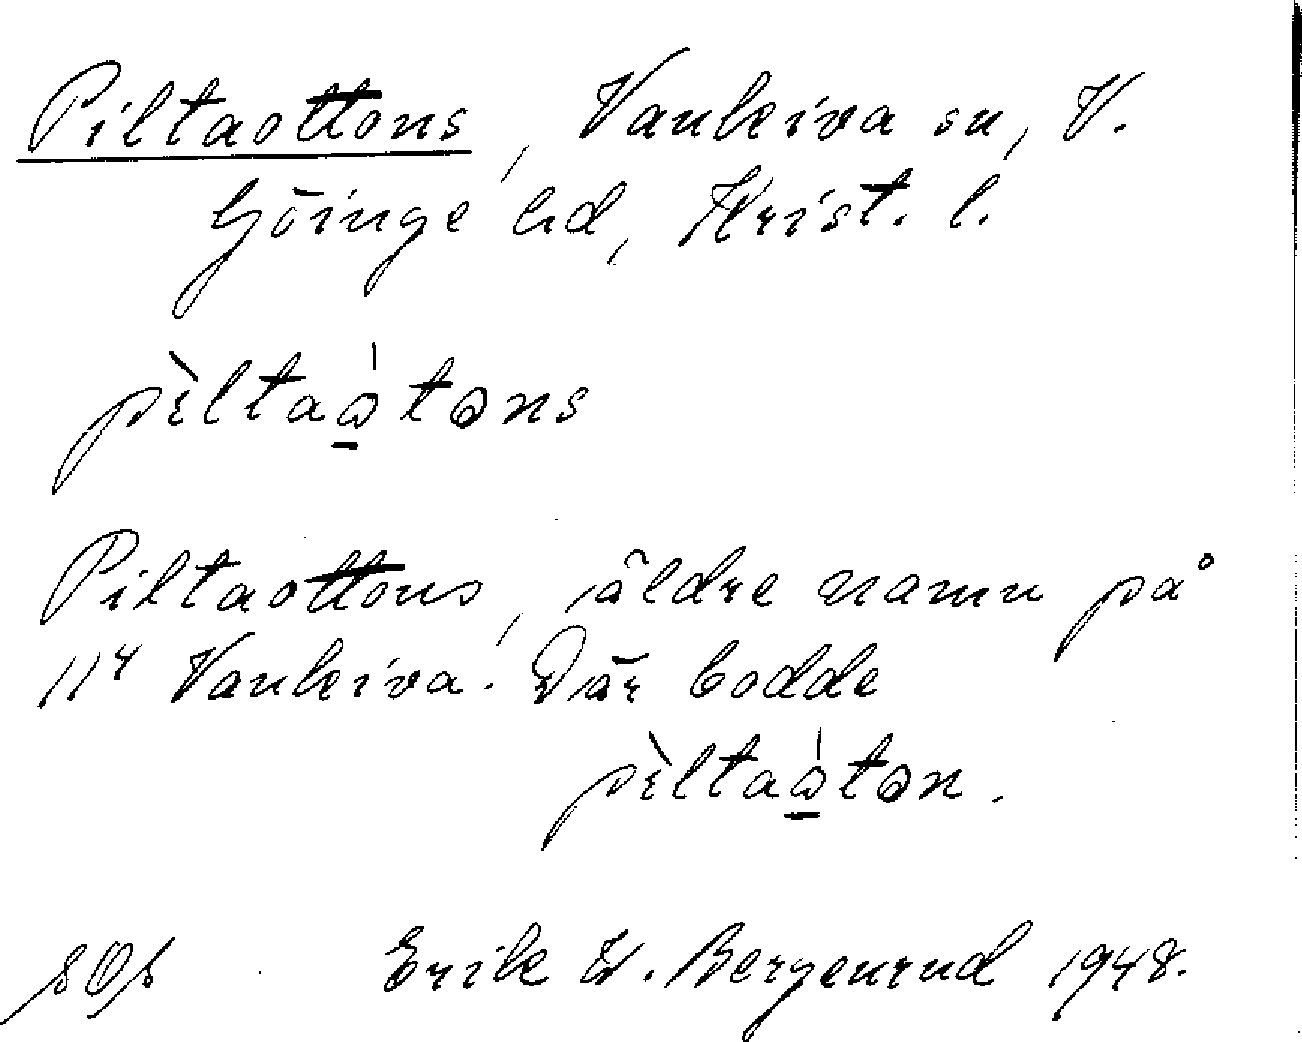 Piltaottons, Vankiva sn, V.
Göinge hd, Krist. l.
pìltaòtons
Piltaottons, äldre namn på
11⁴ Vankiva. Där bodde
pìltaòton.
Erik W. Bergenrud 1948.